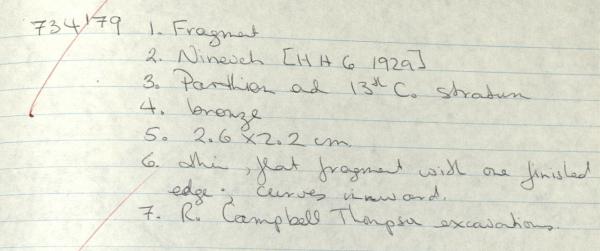 734'79 1. Fragment
2. Nineveh [HH 6 1929]
3. Parthian ad 13th C. stratum
4. bronze
5. 2.6 x 2.2 cm.
6. thin, flat fragment with one finished
edge; curves inward.
7. R. Campbell Thompson excavations.